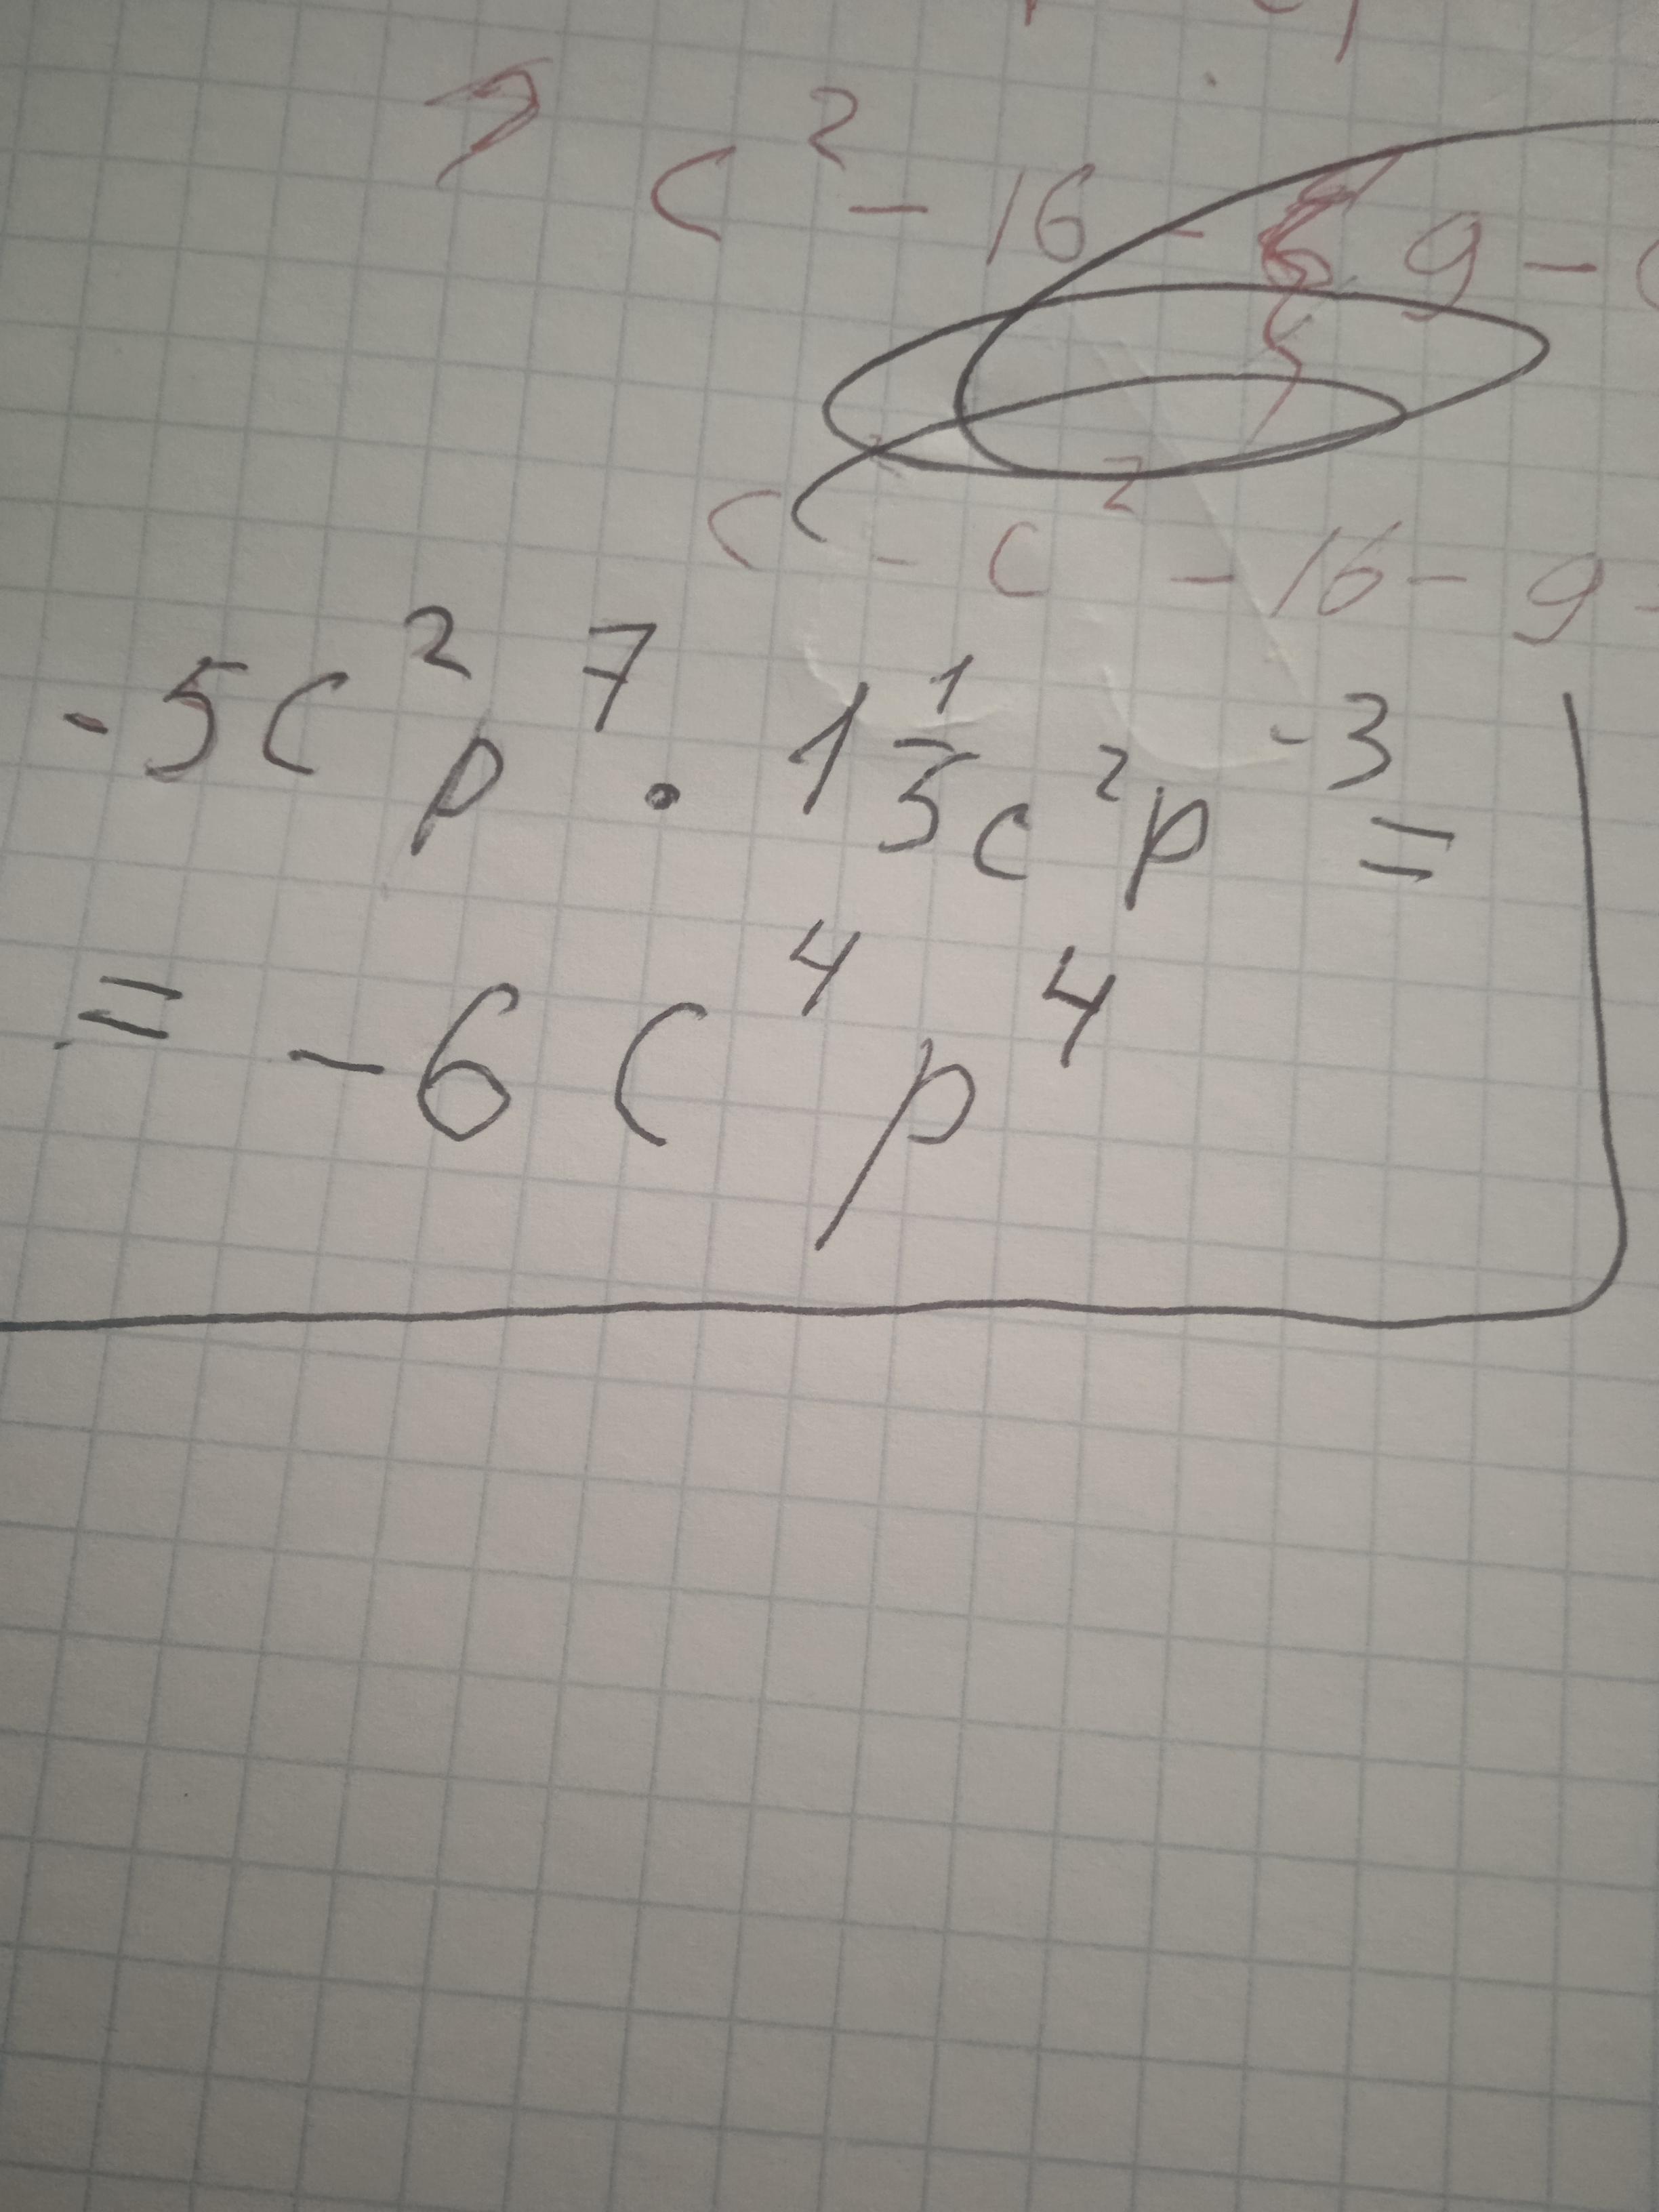 c² - 16 - 9 -
c - c² - 16 - 9 -
-5c²p⁷ · 1 1/5 c²p⁻³ =
= -6c⁴p⁴